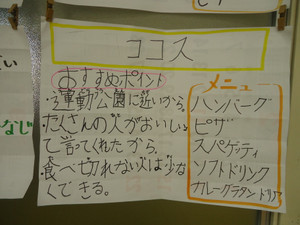 ココス
おすすめポイント
運動公園に近いから
たくさんの人がおいしい
て言ってくれたから
食べ切れない人は少な
くできる。
メニュー
ハンバーグ
ピザ
スパゲッティ
ソフトドリンク
カレーグラタンドリア
なじ